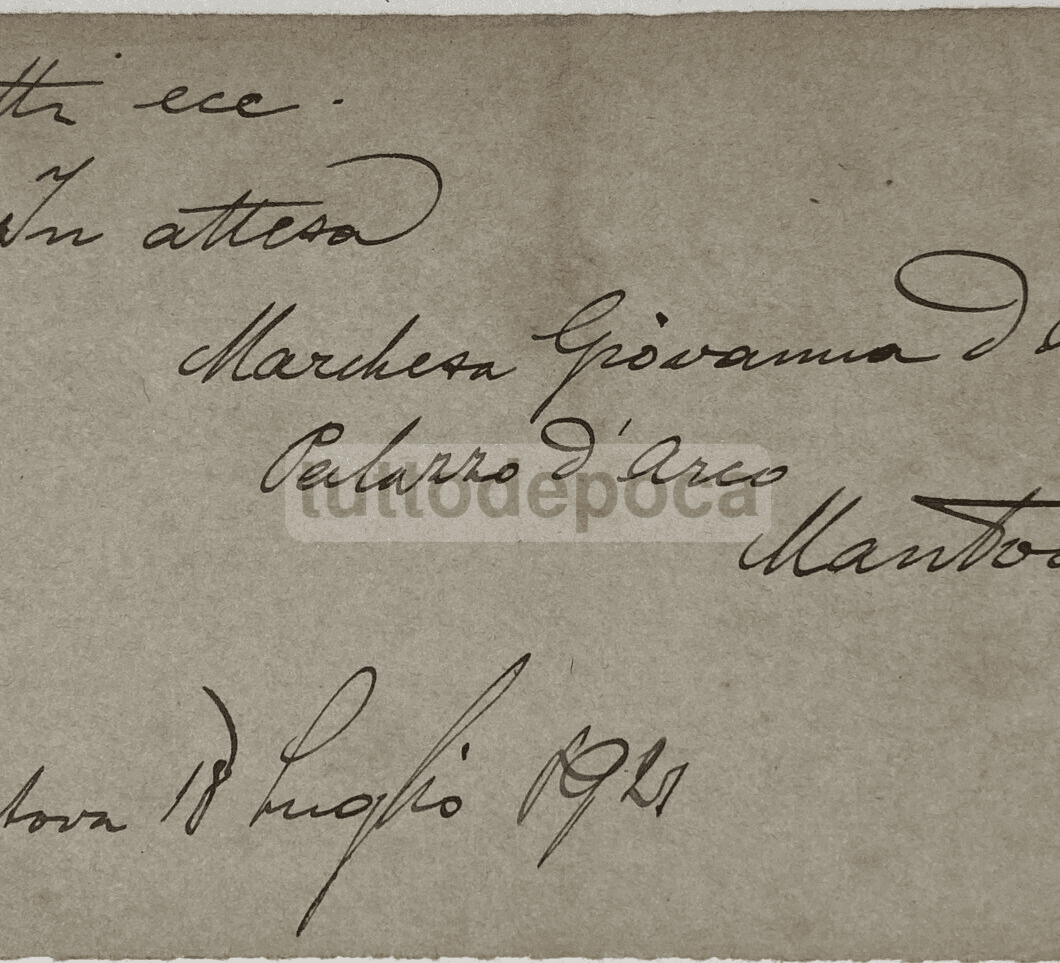 ecc.
In attesa
Marchesa Giovanna d'
Palazzo d'Arco
tuttodepoca
Manto
tova 18 Luglio 1921